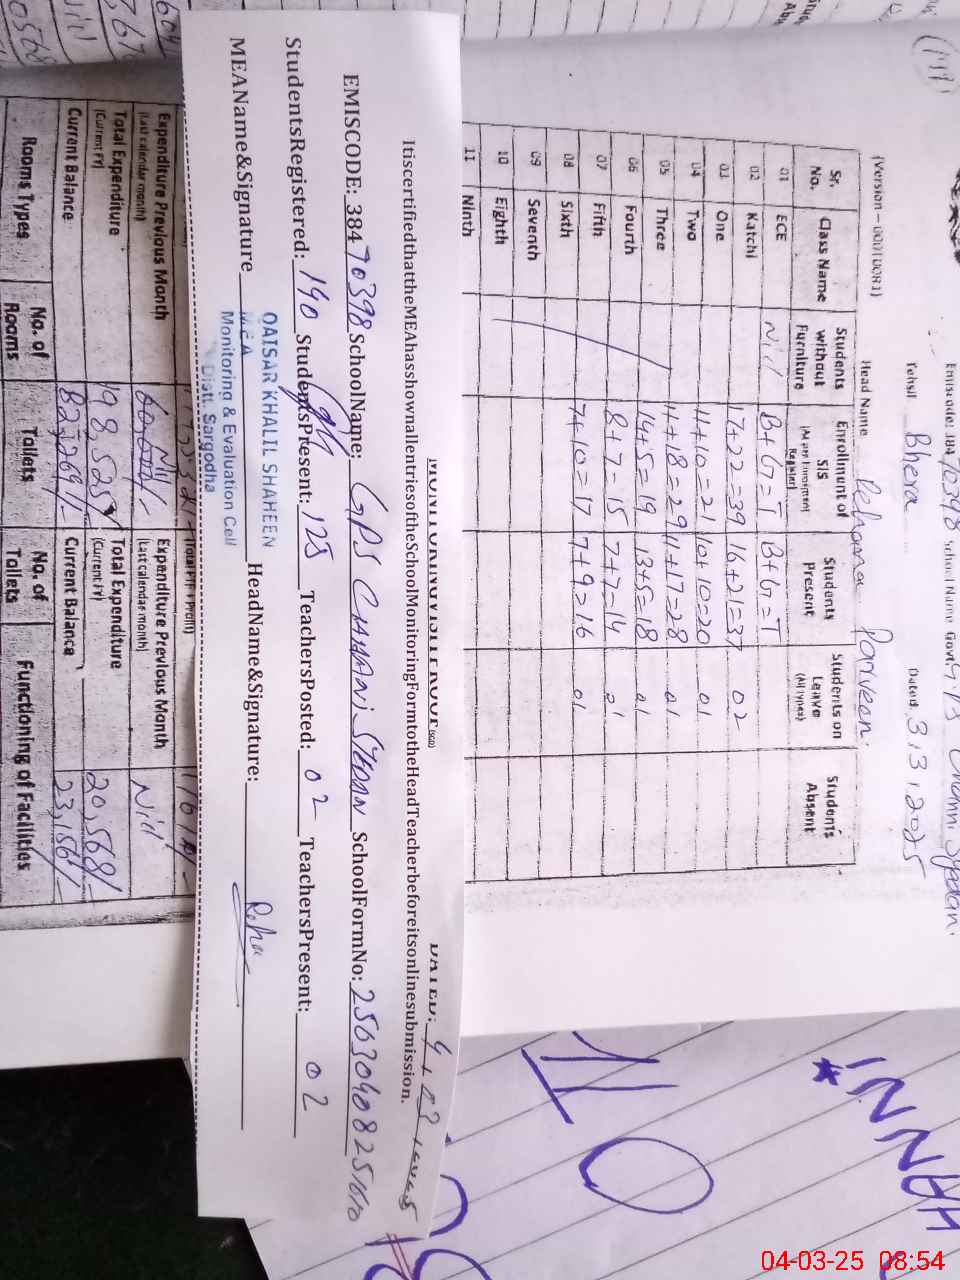 (Version – 000100R1)
Emiscode: 384 70398 School Name Govt. G.P.S Chenni Syedan.
Tehsil Bhera Dated: 3, 3, 2025
Head Name Rehana Parveen.
Sr. No. Class Name Students without Furniture Enrollment of SIS Students Present Students on Leave (All Types) Students Absent
01 ECE Nil B+G=T B+G=T
02 Katchi 17+22=39 16+21=37 02
03 One 11+10=21 10+10=20 01
04 Two 11+18=29 11+17=28 01
05 Three 14+5=19 13+5=18 01
06 Fourth 8+7=15 7+7=14 01
07 Fifth 7+10=17 7+9=16 01
08 Sixth
09 Seventh
10 Eighth
11 Ninth
DATED: 4
ItiscertifiedthattheMEAhasshownallentriesoftheSchoolMonitoringFormtotheHeadTeacherbeforeitsonlinesubmission.
EMISCODE: 38470398 SchoolName: GPS CHHANI SYEDAN SchoolFormNo:
StudentsRegistered: 140 StudentsPresent: 125 TeachersPosted: 02 TeachersPresent: 02
MEAName&Signature HeadName&Signature:
QAISAR KHALIL SHAHEEN
M.E.A
Monitoring & Evaluation Cell
Distt. Sargodha
Expenditure Previous Month (Last calendar month) Nil Expenditure Previous Month (Last calendar month) Nil
Total Expenditure (Current FY) 198,525/- Total Expenditure (Current FY) 20,568/-
Current Balance 82,269/- Current Balance 23,156/-
Rooms Types No. of Rooms Toilets No. of Toilets Functioning of Facilities
HANNI
10
04-03-25 08:54